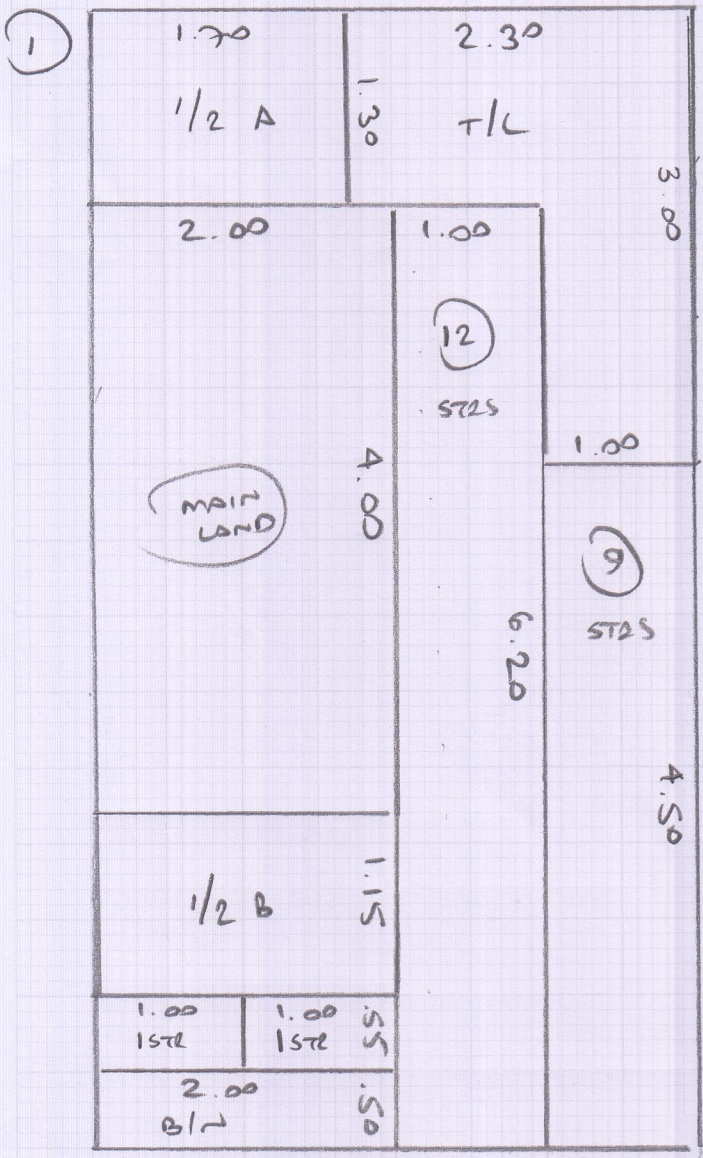 1
1.70
1/2 A
1.30
2.30
T/L
3.00
2.00
1.00
12
STRS
1.00
MAIN
LAND
4.00
9
STRS
6.20
4.50
1/2 B
1.15
1.00
1 STR
1.00
1 STR
.55
2.00
B/N
.50